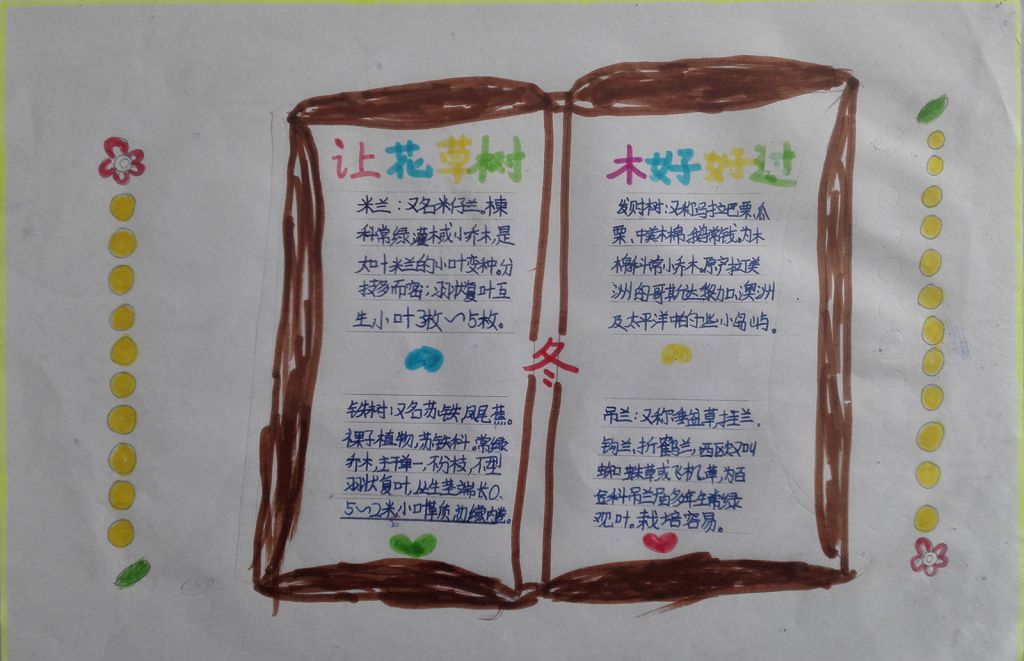 让花草树
米兰：又名米仔兰。楝
科常绿灌木或小乔木,是
大叶米兰的小叶变种。分
枝多而密;羽状复叶互
生,小叶3枚～5枚。
铁树：又名苏铁,凤尾蕉。
裸子植物,苏铁科。常绿
乔木,主干单一,不分枝,大型
羽状复叶,丛生茎端长0.
5～2米,小叶厚质,边缘内卷。
冬
木好好过
发财树：又称马拉巴栗、瓜
栗、中美木棉、鹅掌钱。为木
棉科常小乔木。原产拉丁美
洲的哥斯达黎加、澳洲
及太平洋中的一些小岛屿。
吊兰：又称垂盆草,挂兰、
钩兰,折鹤兰,西欧又叫
蜘蛛草或飞机草,为百
合科吊兰属多年生常绿
观叶。栽培容易。